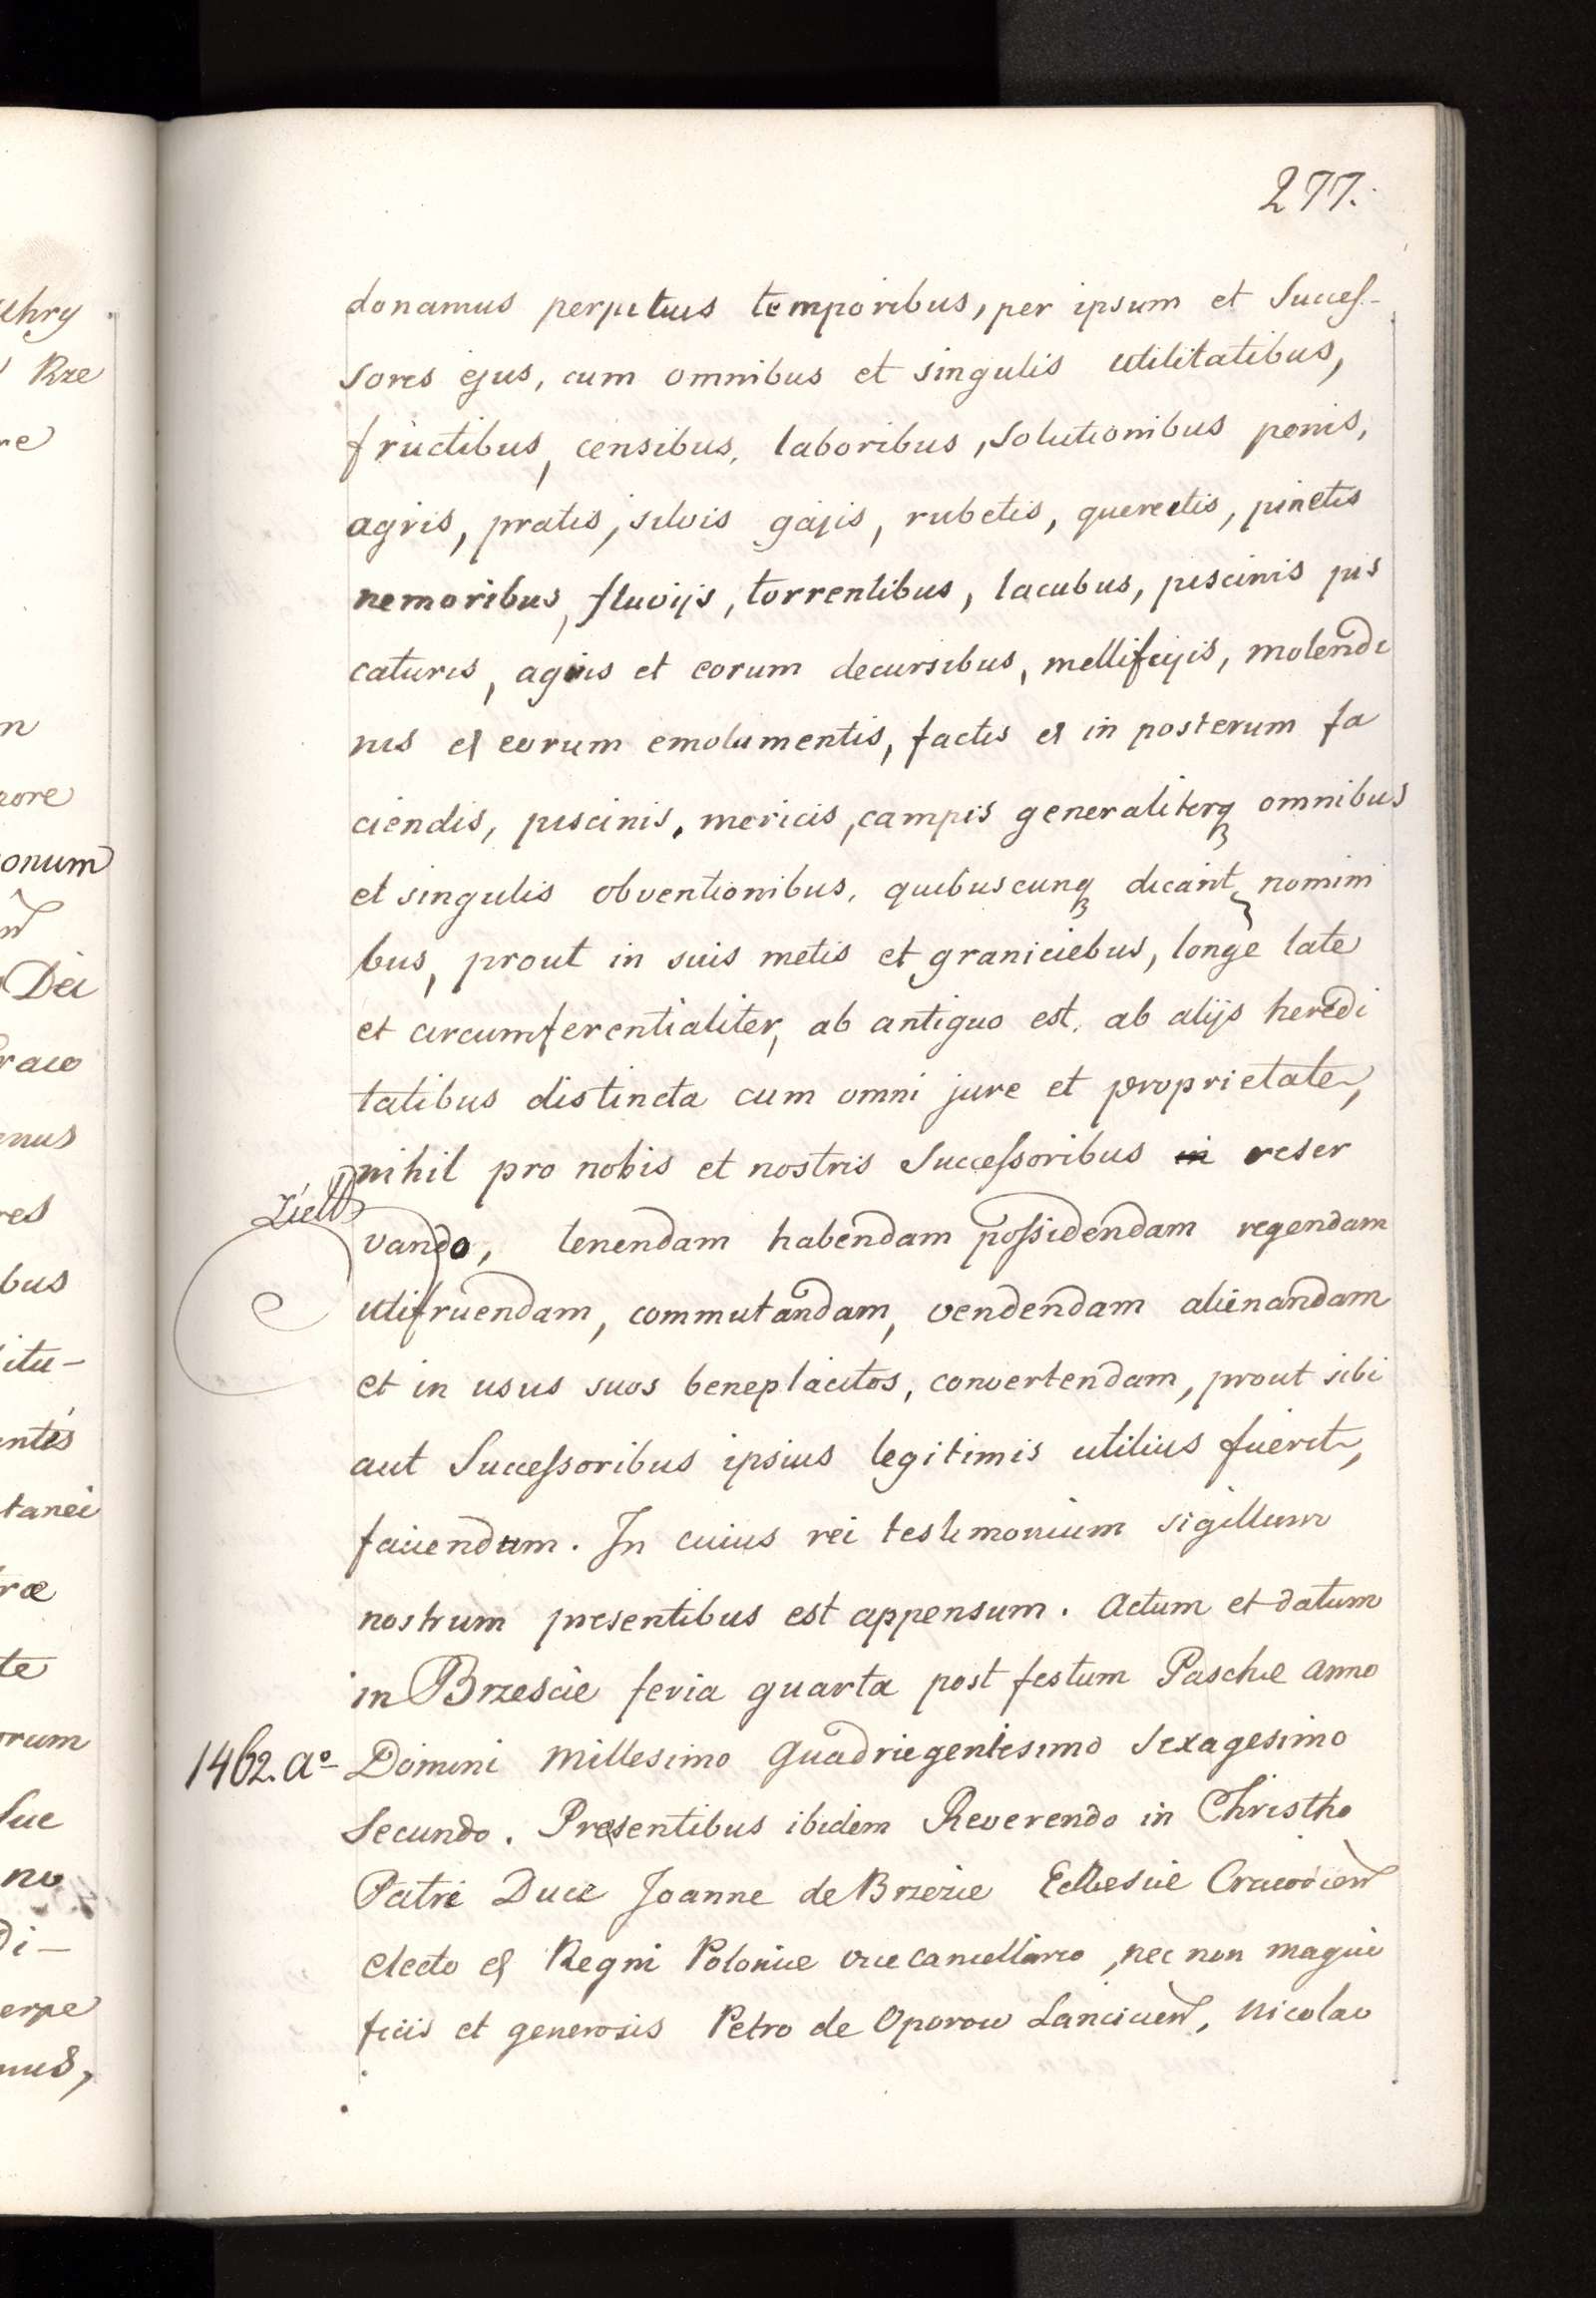 277.
donamus perpetuis temporibus, per ipsum et Succeſ-
sores ejus, cum omnibus et singulis utilitatibus,
fructibus, censibus, laboribus, solutionibus penis,
agris, pratis, silvis gajis, rubetis, quercetis, pinetis
nemoribus, fluvijs, torrentibus, lacubus, piscinis pis
caturis, aquis et eorum decursibus, mellificijs, molendi
nis et eorum emolumentis, factis et in posterum fa
ciendis, piscinis, mericis, campis generaliterq3 omnibus
et singulis obventionibus, quibuscunq3 dicant3 nomini
bus, prout in suis metis et graniciebus, longe late
et circumferentialiter, ab antiquo est, ab alijs heredi
tatibus distincta cum omni jure et proprietate,
nihil pro nobis et nostris Succeſsoribus in reser
vando, tenendam habendam poſsidendam regendam
utifruendam, commutandam, vendendam alienandam
et in usus suos beneplacitos, convertendam, prout sibi
aut Succeſsoribus ipsius legitimis utilius fuerit,
faciendam. In cuius rei testimonium sigillum
nostrum presentibus est appensum. Actum et datum
in Brzescie feria quarta post festum Pasche anno
1462. Aº Domini Millesimo Quadriegentesimo Sexagesimo
Secundo. Presentibus ibidem Reverendo in Christho
Patre Duce Joanne de Brzezie Ecclesiie Cracovien
electo et Regni Poloniie vicecancellario, nec non magni
ficis et generosis Petro de Oporow Lancicien, Nicolao
uhry
Rze
re
n
nore
onum
Dei
raco
enus
res
bus
itu-
entés
tanei
ræ
te
orum
Suc
no
di-
erpe
mus,